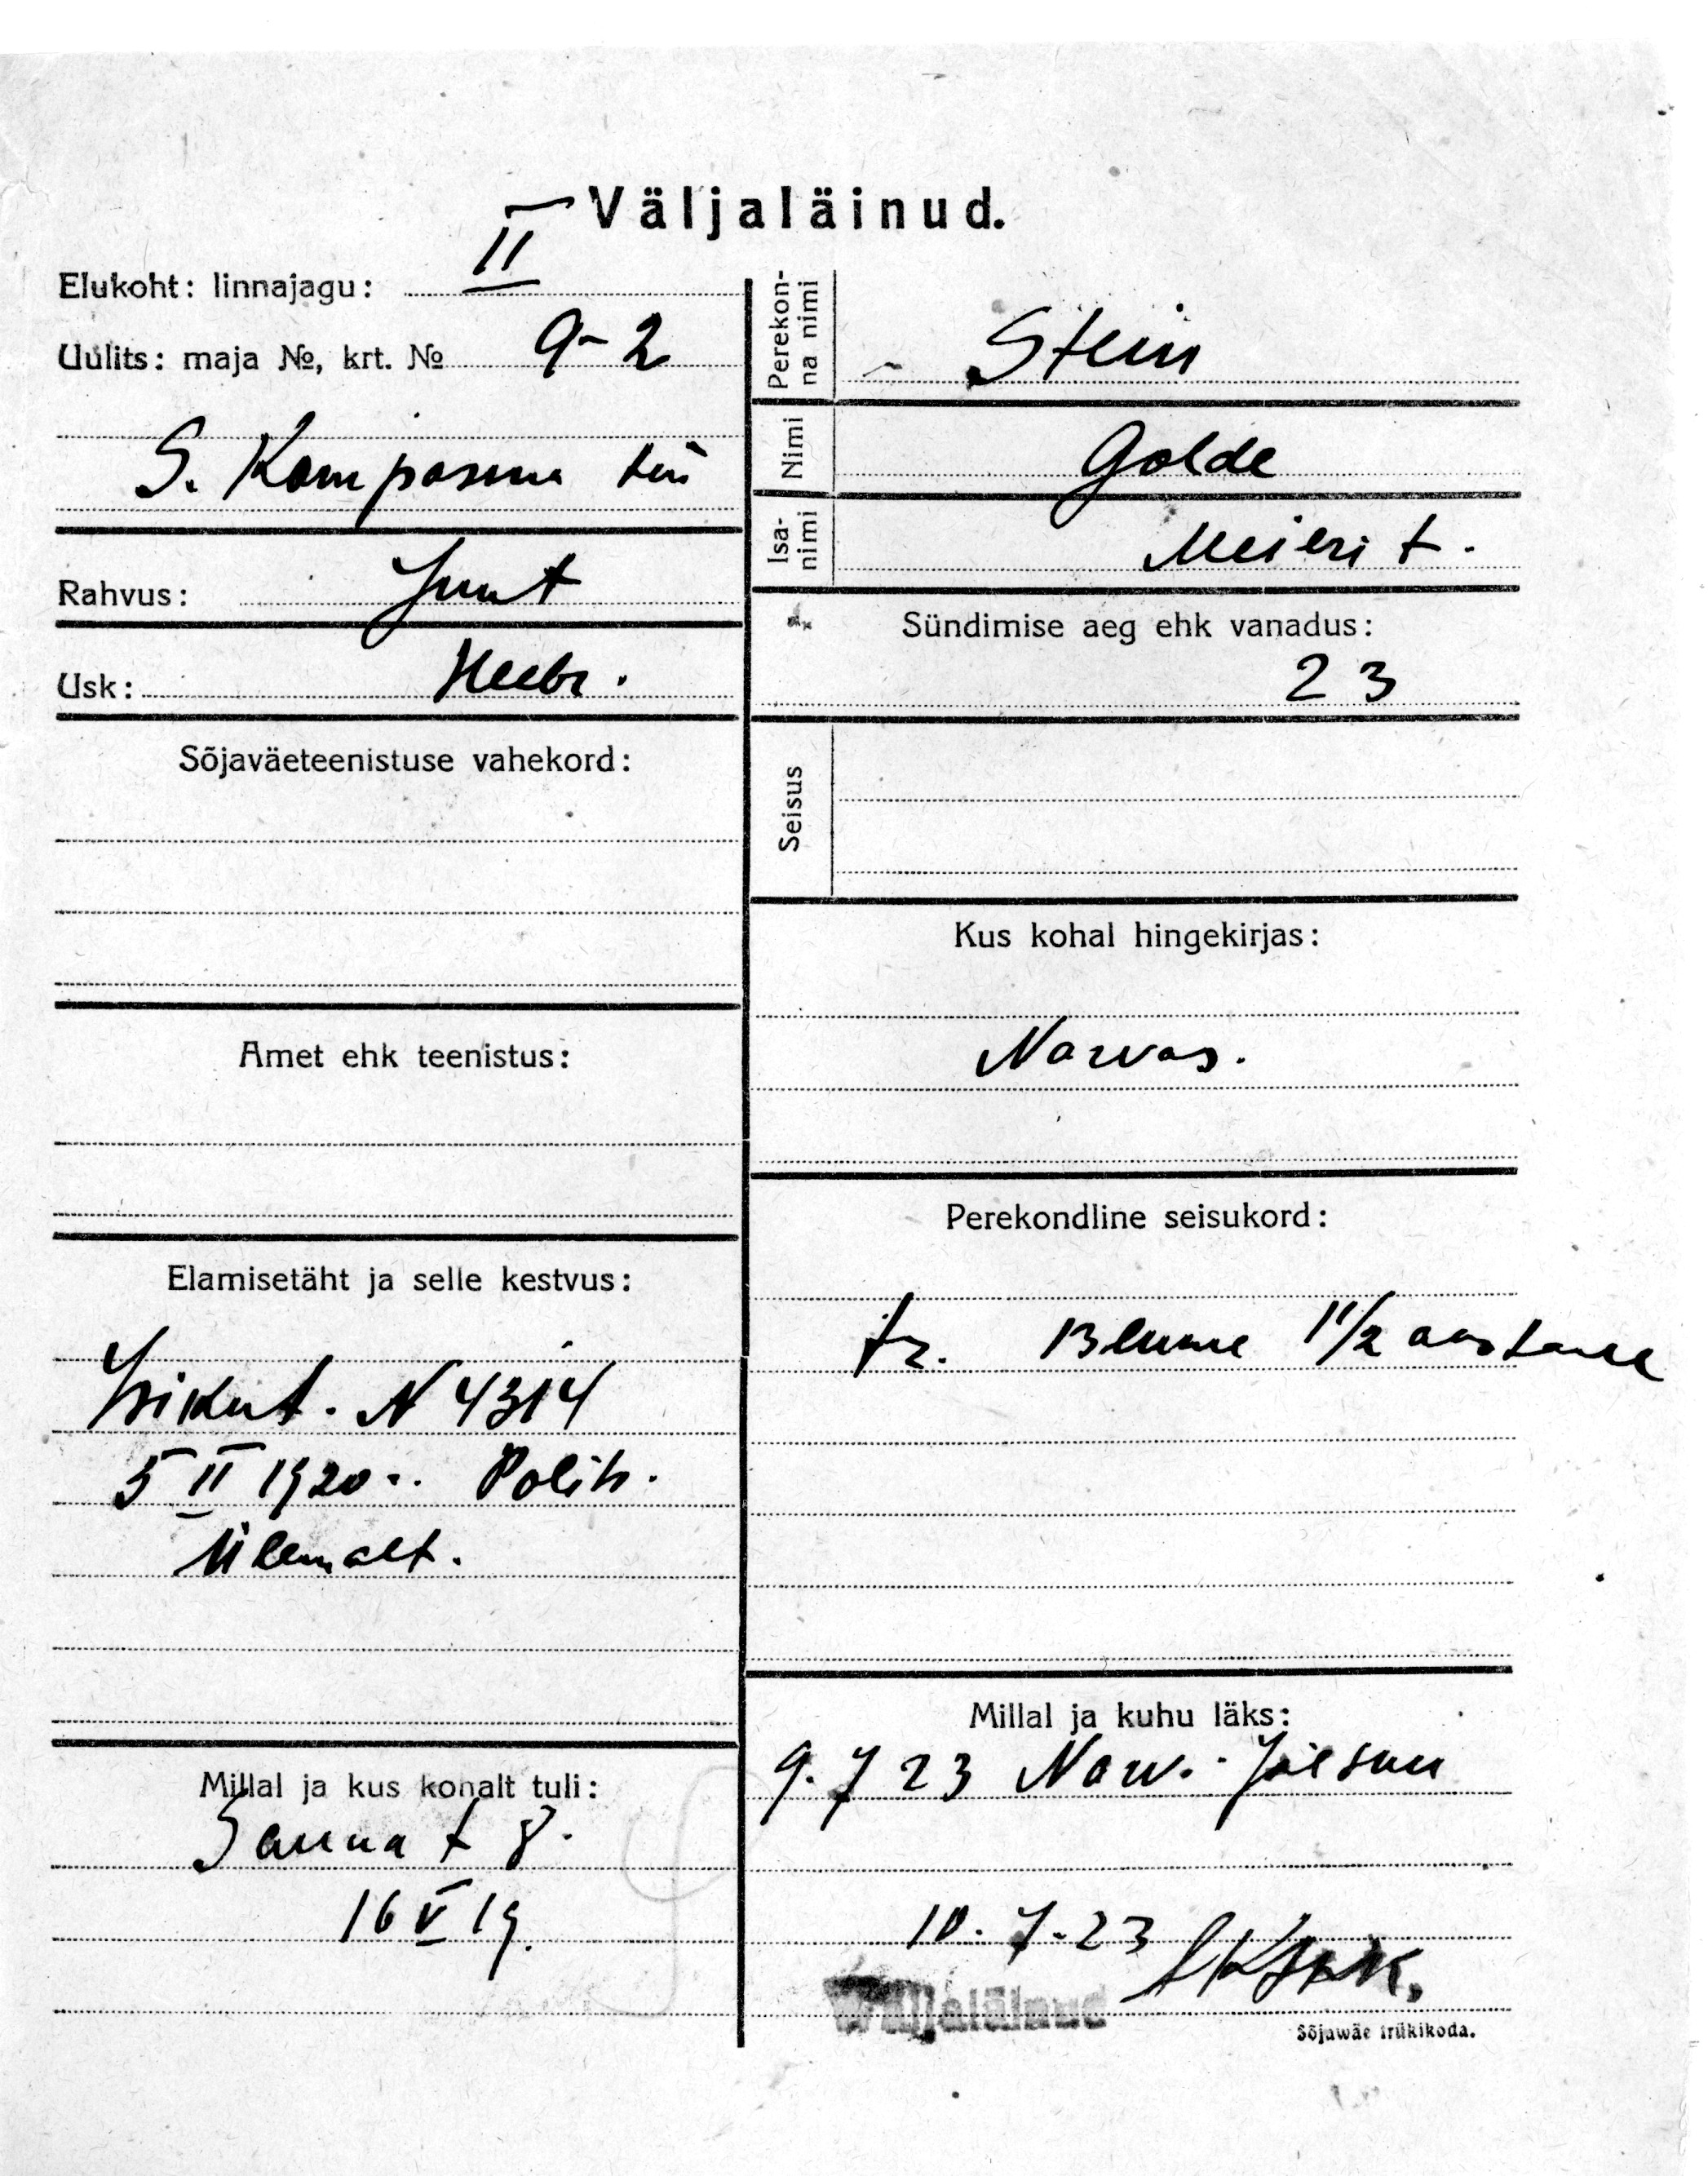 Väljaläinud.
Elukoht: linnajagu: II
Uulits: maja №, krt. № 9-2
S. Kompasna tän
Rahvus: Juut
Usk: Heebr.
Sõjaväeteenistuse vahekord:
Amet ehk teenistus:
Elamisetäht ja selle kestvus:
Isikut. N 4314
5 II 1920.. Polits.
Ülemalt.
Millal ja kus kohalt tuli:
Sauna t 8.
16 V 19.
Perekon-
na nimi
Stein
Nimi
Golde
Isa-
nimi
Meieri t.
Sündimise aeg ehk vanadus:
23
Seisus
Kus kohal hingekirjas:
Narvas.
Perekondline seisukord:
tr. Blume 1 1/2 aastane
Millal ja kuhu läks:
9. 7 23 Narv.-Jõesuu
10. 7. 23
Wäljaläinud
Sõjawäe trükikoda.